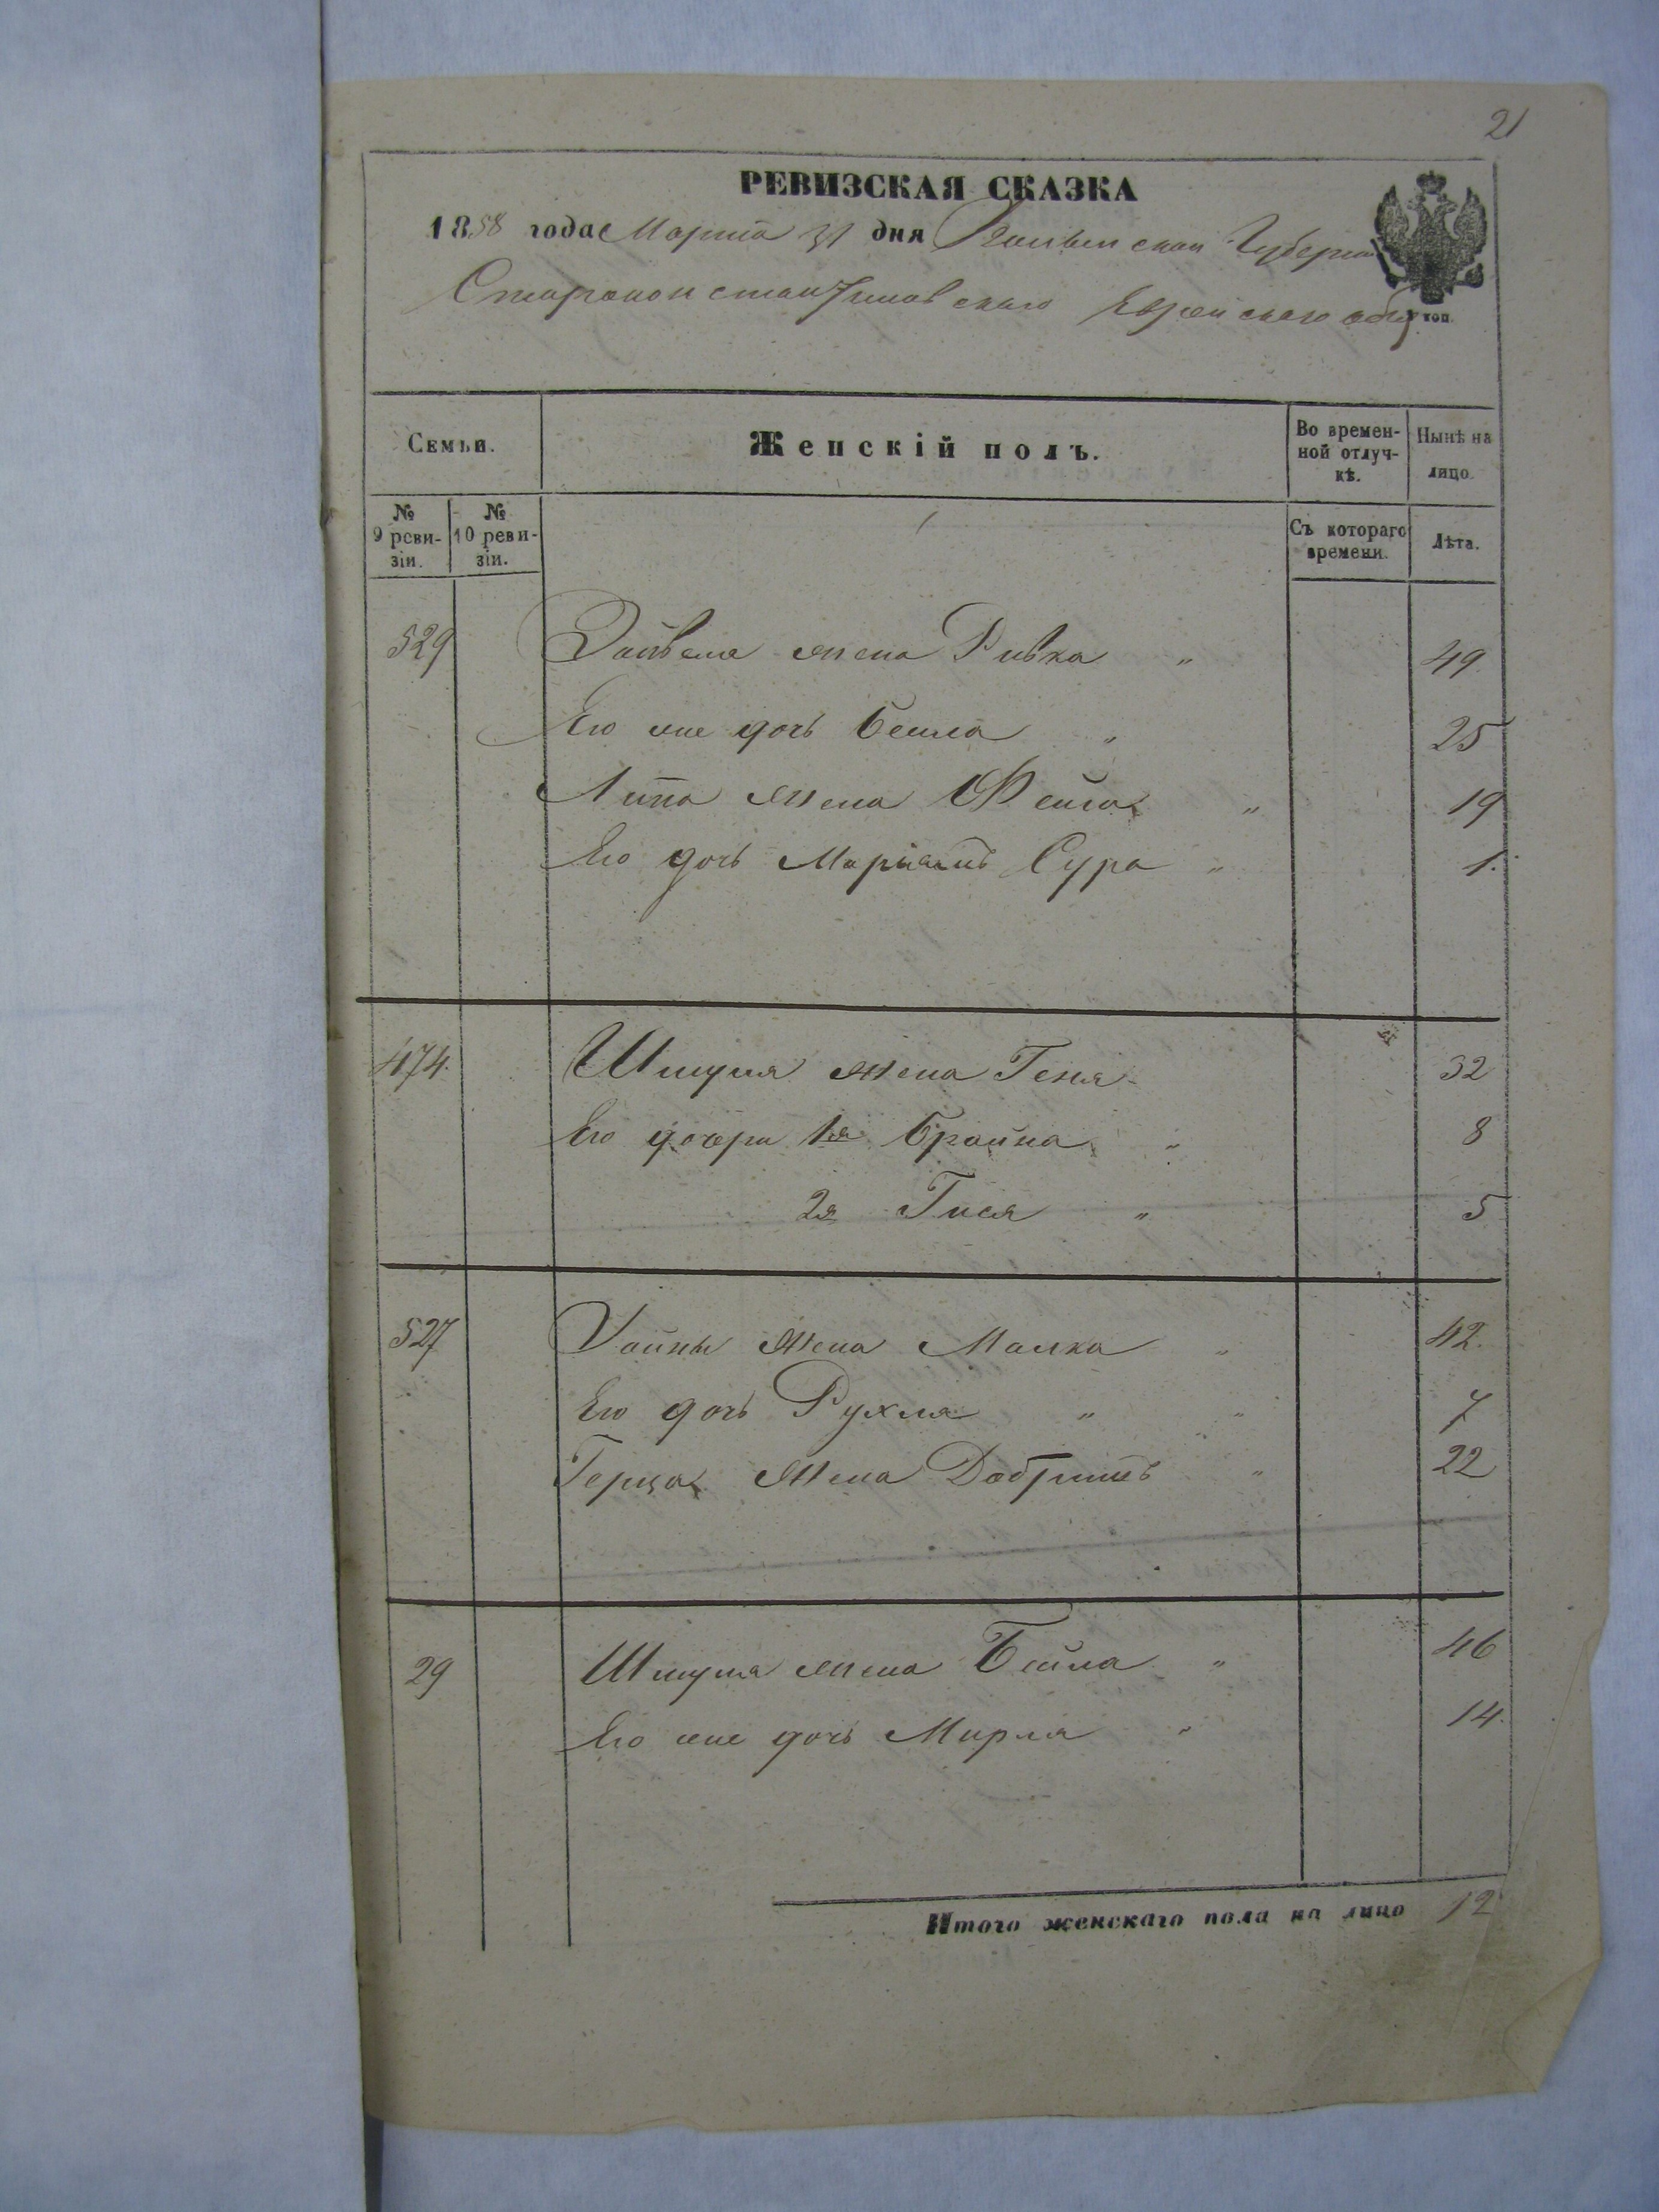 21
РЕВИЗСКАЯ СКАЗКА
1858 года Марта 31 дня Волынской Губерніи
Староконстантиновскаго Еврейскаго общ
коп.
Семьи. Женскій полъ. Во времен-ной отлуч-кѣ. Нынѣ на лицо.
№ 9 реви-зіи. № 10 реви-зіи. Съ котораго времени. Лѣта.
529 жена Ривка " 49
Его же дочь Бейла " 25
жена Фейга " 19
Его дочь Маріямъ Сура " 1.
474. Шмуля жена Геня 32
Его дочери 1я Брайна " 8
2я Гися " 5
527 жена Малка " 42.
Его дочь Рухля " " 7
Герша жена Добришъ " 22
29 Шмуля жена Бейла " 46
Его же дочь Мирля " 14.
Итого женскаго пола на лицо 12